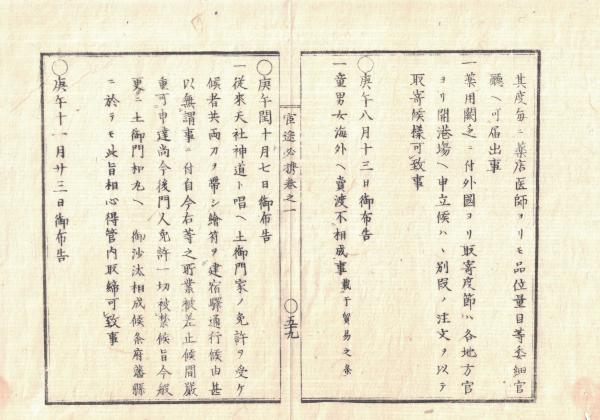 其度每ニ薬店医師ヨリモ品位量目等委細官
廳ヘ可届出事
一薬用闕乏ニ付外國ヨリ取寄度節ハ各地方官
ヨリ開港場ヘ申立候ハヽ別段ノ注文ヲ以テ
取寄候様可致事
〇庚午八月十三日御布告
一童男女海外ヘ賣渡不相成事 載于貿易之条
官途必携巻之一
〇五十九
〇庚午閏十月七日御布告
一従来天社神道ト唱ヘ土御門家ノ免許ヲ受ケ
候者共両刀ヲ帶シ繪符ヲ建宿驛通行候由甚
以無謂事ニ付自今右等之所業被差止候間嚴
重可申達尚今後門人免許一切被禁候旨今般
更ニ土御門和丸ヘ御沙汰相成候条府藩縣
ニ於テモ此旨相心得管内取締可致事
〇庚午十一月廿三日御布告